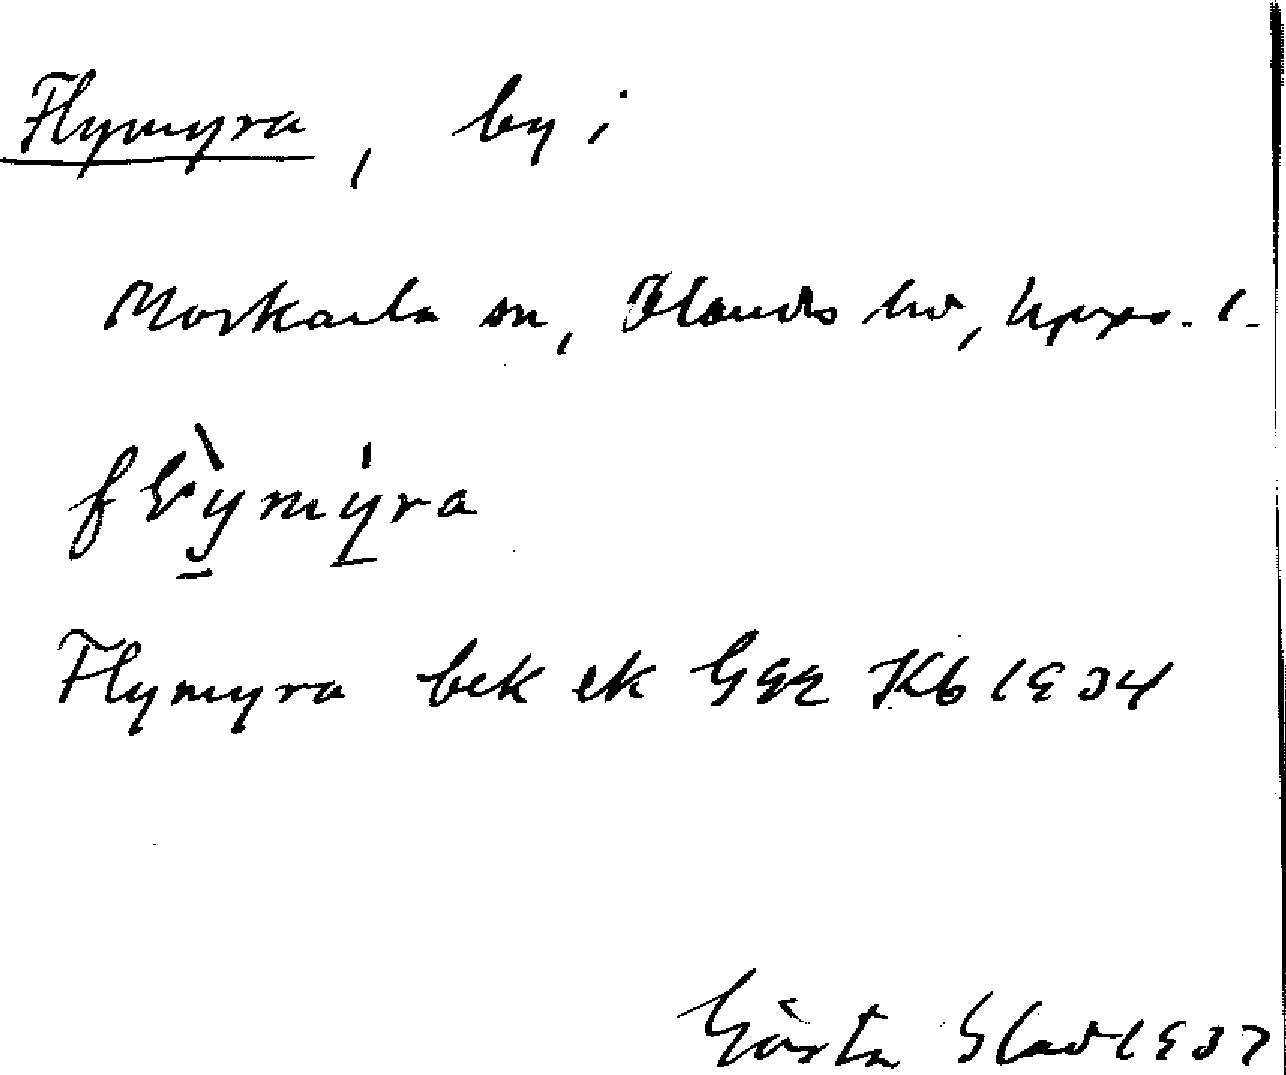 Flymyra, by i
Morkarla sn, Olands hd, Upps. l.
flỳmýra
Flymyra bek ek GEK Kb 1934
Gösta Blad 1937